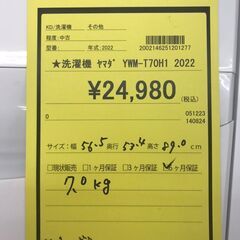 KD/洗濯機 その他
程度:中古
型番: 年式:2022
2002146251201277
★洗濯機 ヤマダ YWM-T70H1 2022
¥24,980
(税込)
0
051223
140824
サイズ:幅 56.5 奥行 53.4 高さ 89.0 cm
□現状販売 □1ヶ月保証 □3ヶ月保証 ☑6ヶ月保証
7.0kg